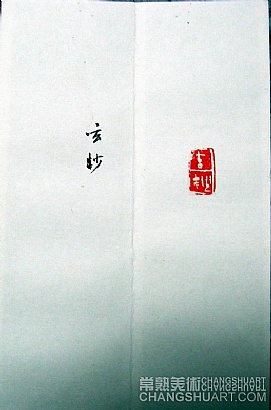 玄妙
常熟美術CHANGSHUART
CHANGSHUART.COM